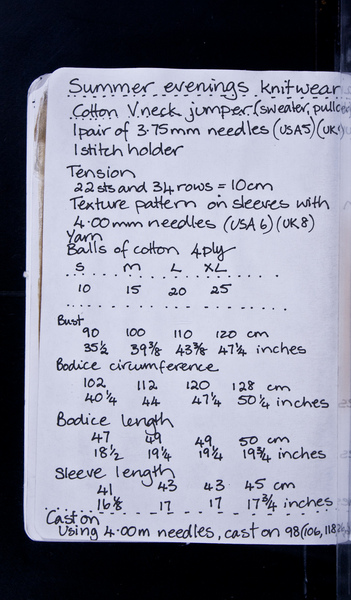 Summer evenings knitwear
Cotton V.neck jumper (sweater, pullover
1 pair of 3.75mm needles (USA5)(UK9
1 stitch holder
Tension
22 sts and 34 rows = 10cm
Texture pattern on sleeves with
4.00mm needles (USA 6)(UK 8)
Yarn
Balls of cotton 4ply
S M L XL
10 15 20 25
Bust
90 100 110 120 cm
35½ 39⅜ 43⅜ 47¼ inches
Bodice circumference
102 112 120 128 cm
40¼ 44 47¼ 50¼ inches
Bodice length
47 49 49 50 cm
18½ 19¼ 19¼ 19¾ inches
Sleeve length
41 43 43 45 cm
16⅛ 17 17 17¾ inches
Cast on
Using 4.00m needles, cast on 98(106,118